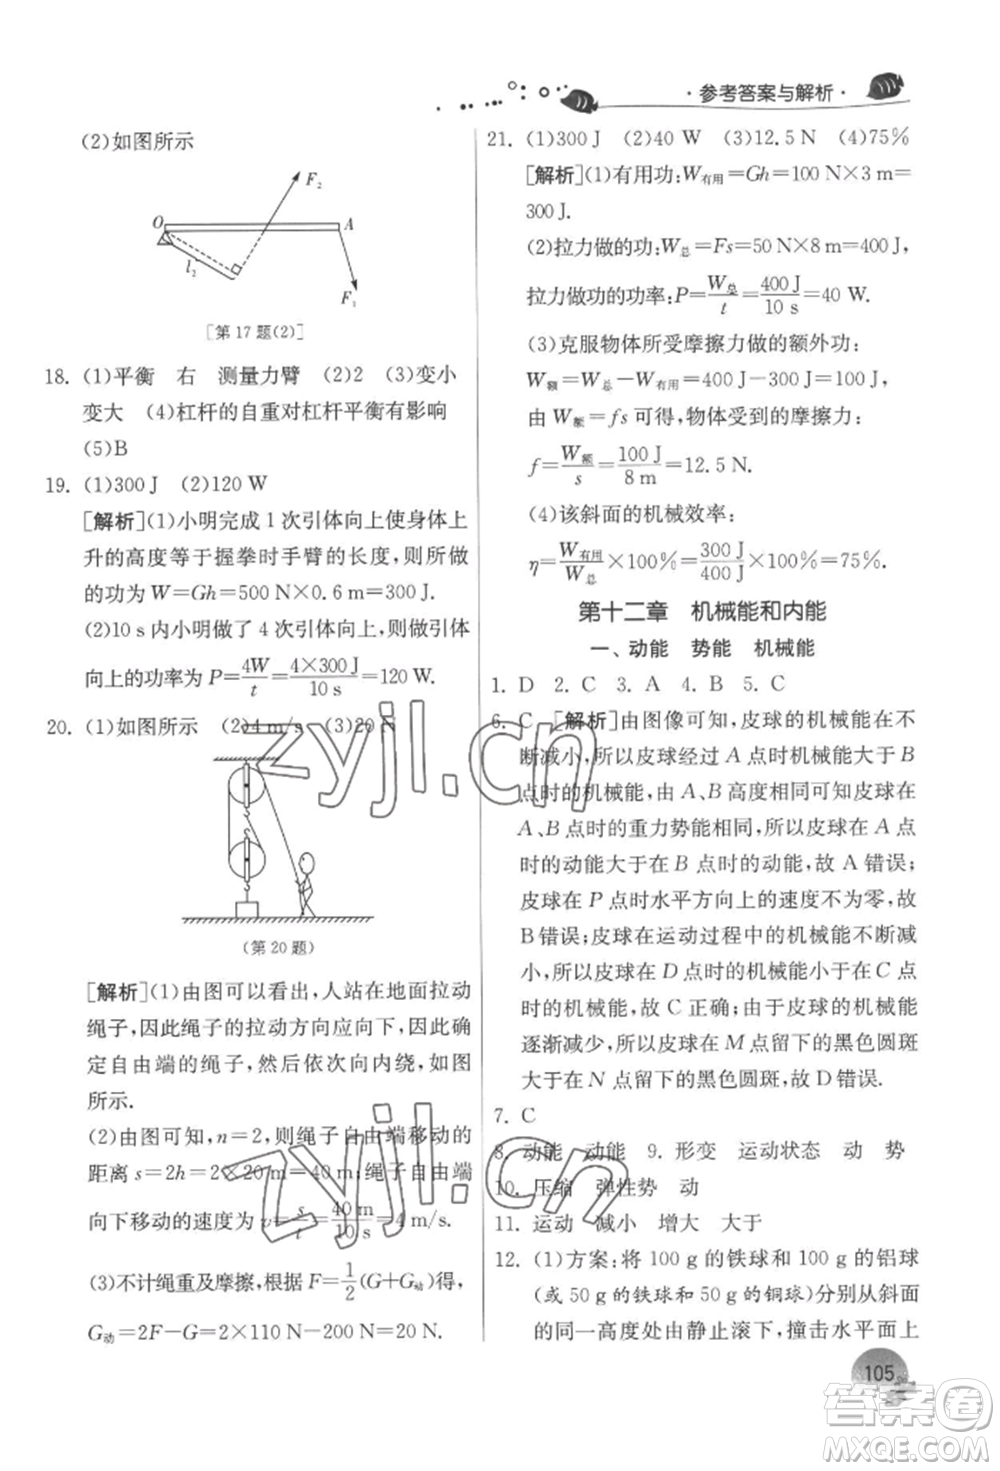 ·参考答案与解析·
(2)如图所示
F₂
O
A
l₂
F₁
[第 17 题(2)]
18. (1)平衡 右 测量力臂 (2)2 (3)变小
变大 (4)杠杆的自重对杠杆平衡有影响
(5)B
19. (1)300 J (2)120 W
[解析](1)小明完成 1 次引体向上使身体上
升的高度等于握拳时手臂的长度，所以做
的功为 W=Gh=500 N×0.6 m=300 J.
(2)10 s 内小明做了 4 次引体向上，则做功
向上的功率 P=4W/t=4×300 J/10 s=120 W.
20. (1)如图所示 (2)4 m/s (3)20 N
(第 20 题)
[解析](1)由图可以看出，人站在地面拉动
绳子，因此绳子的拉动方向应向下，因此确
定自由端的绳子，然后依次向内绕，如图
所示.
(2)由图可知，n=2，则绳子自由端移动的
距离 s=2h=2×20 m=40 m；绳子自由端
向下移动的速度为 v=s/t=40 m/10 s=4 m/s.
(3)不计绳重及摩擦，根据 F=1/2(G+G动)得，
G动=2F-G=2×110 N-200 N=20 N.
21. (1)300 J (2)40 W (3)12.5 N (4)75%
[解析](1)有用功：W有用=Gh=100 N×3 m=
300 J.
(2)拉力做的功：W总=Fs=50 N×8 m=400 J，
拉力做功的功率：P=W总/t=400 J/10 s=40 W.
(3)克服物体所受摩擦力做的额外功：
W额=W总-W有用=400 J-300 J=100 J，
由 W额=fs 可得，物体受到的摩擦力：
f=W额/s=100 J/8 m=12.5 N.
(4)该斜面的机械效率：
η=W有用/W总×100%=300 J/400 J×100%=75%.
第十二章 机械能和内能
一、动能 势能 机械能
1. D 2. C 3. A 4. B 5. C
6. C [解析]由图像可知，皮球的机械能在不
断减小，所以皮球经过 A 点时机械能大于 B
点时的机械能，由 A、B 高度相同可知皮球在
A、B 点时的重力势能相同，所以皮球在 A 点
时的动能大于在 B 点时的动能，故 A 错误；
皮球在 P 点时水平方向上的速度不为零，故
B 错误；皮球在运动过程中的机械能不断减
小，所以皮球在 D 点时的机械能小于在 C 点
时的机械能，故 C 正确；由于皮球的机械能
逐渐减少，所以皮球在 M 点留下的黑色圆斑
大于在 N 点留下的黑色圆斑，故 D 错误.
7. C
8. 动能 动能 9. 形变 运动状态 动 势
10. 压缩 弹性势 动
11. 运动 减小 增大 大于
12. (1)方案：将 100 g 的铁球和 100 g 的铝球
(或 50 g 的铁球和 50 g 的铜球)分别从斜面
的同一高度处由静止滚下，撞击水平面上
105
zyjl.cn
zyjl.cn
答案圈
MXQE.COM